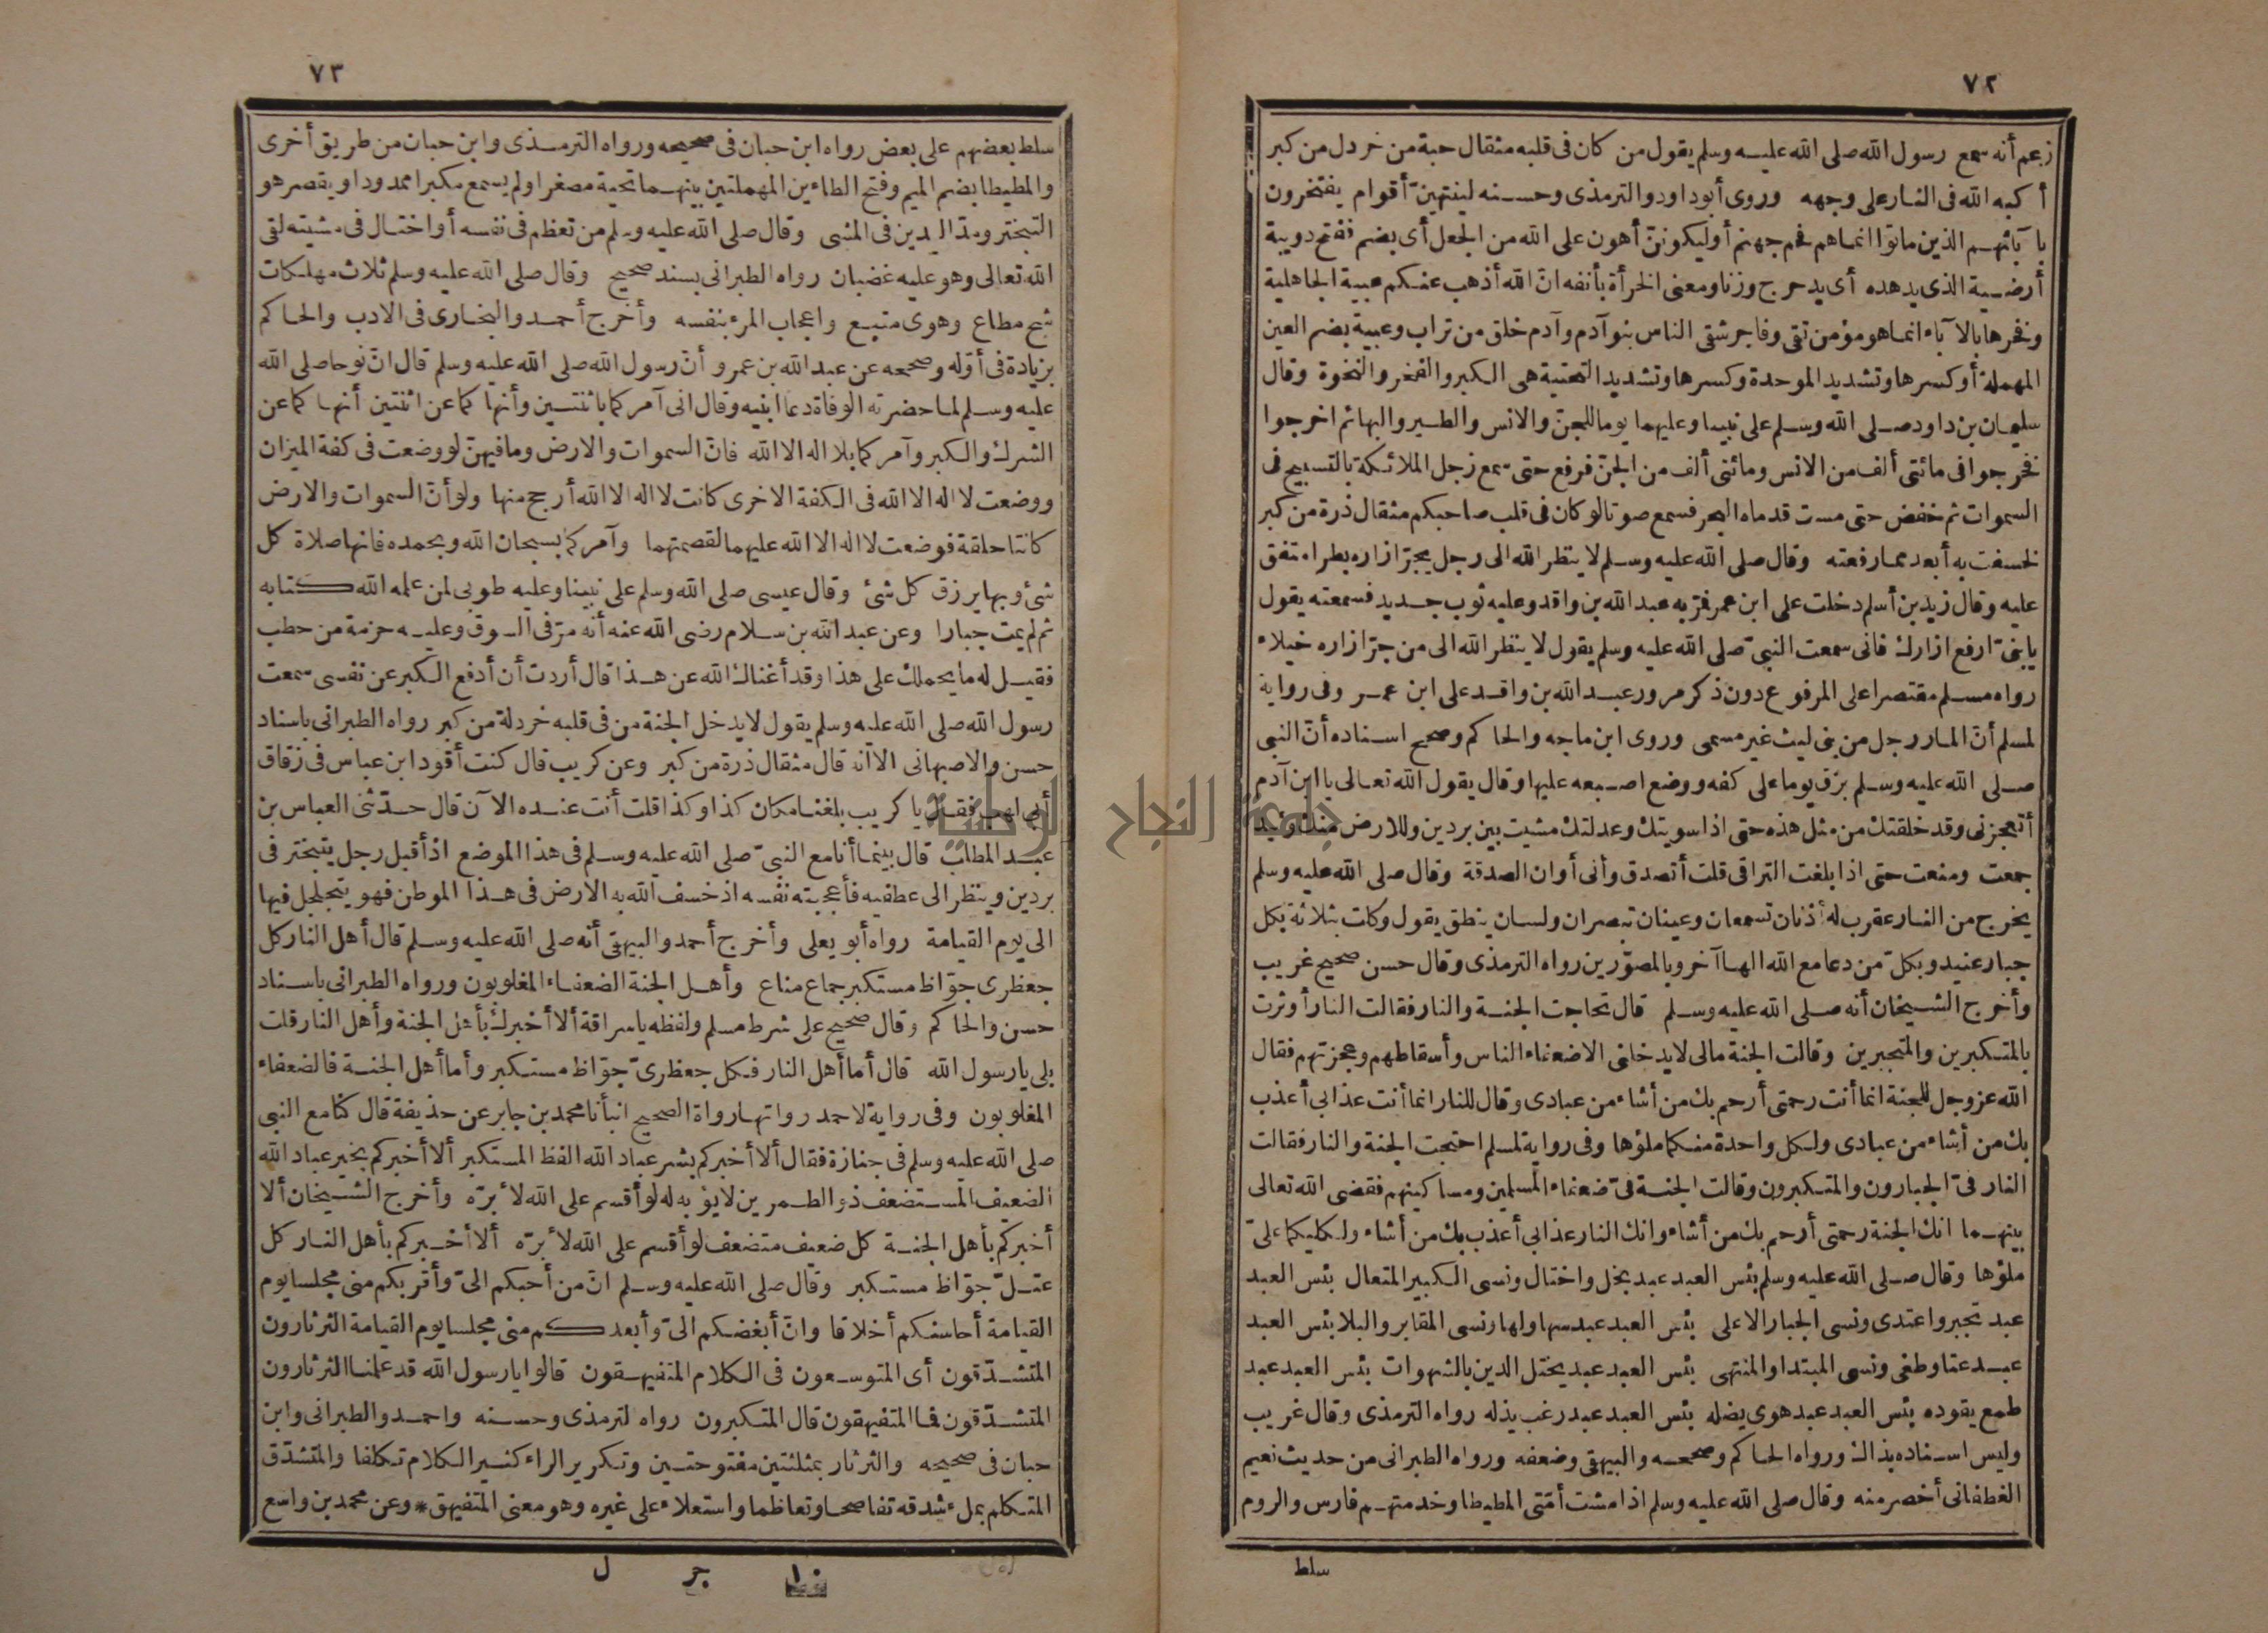 ٧٢
زعم أنه سمع رسول الله صلى الله عليه وسلم يقول من كان فى قلبه مثقال حبة من خردل من كبر
أكبه الله فى النار على وجهه وروى أبو داود والترمذى وحسنه لينتهينّ أقوام يفتخرون
بآبائهم الذين ماتوا انماهم فحم جهنم أوليكوننّ أهون على الله من الجعل أى بضم ففتح دويبة
أرضية الذى يدهده أى يدحرج وزنا ومعنى الخرأة بأنفه انّ الله أذهب عنكم عبية الجاهلية
وفخرها بالآباء انما هو مؤمن تقى وفاجر شقى الناس بنو آدم وآدم خلق من تراب وعبية بضم العين
المهملة أو كسرها وتشديد الموحدة وكسرها وتشديد التحتية هى الكبر والفخر والنخوة وقال
سليمان بن داود صلى الله وسلم على نبينا وعليهما يوما للجنّ والانس والطير والبهائم اخرجوا
فخرجوا فى مائتى ألف من الانس ومائتى ألف من الجنّ فرفع حتى سمع زجل الملائكة بالتسبيح فى
السموات ثم خفض حتى مست قدماه البحر فسمع صوتا لو كان فى قلب صاحبكم مثقال ذرة من كبر
لخسفت به أبعد مما رفعته وقال صلى الله عليه وسلم لا ينظر الله الى رجل يجرّ ازاره بطرا متفق
عليه وقال زيد بن أسلم دخلت على ابن عمر فمرّ به عبد الله بن واقد وعليه ثوب جديد فسمعته يقول
يا بنىّ ارفع ازارك فانى سمعت النبىّ صلى الله عليه وسلم يقول لا ينظر الله الى من جرّ ازاره خيلاء
رواه مسلم مقتصرا على المرفوع دون ذكر مرور عبد الله بن واقد على ابن عمر وفى رواية
لمسلم أنّ المار رجل من بنى ليث غير مسمى وروى ابن ماجه والحاكم وصحح اسناده أنّ النبى
صلى الله عليه وسلم بزق يوما على كفه ووضع اصبعه عليها وقال يقول الله تعالى يا ابن آدم
أتعجزنى وقد خلقتك من مثل هذه حتى اذا سويتك وعدلتك مشيت بين بردين وللارض منك وئيد
جمعت ومنعت حتى اذا بلغت التراقى قلت أتصدق وأنى أوان الصدقة وقال صلى الله عليه وسلم
يخرج من النار عقرب له أذنان تسمعان وعينان تبصران ولسان ينطق يقول وكلت بثلاثة بكل
جبار عنيد وبكلّ من دعا مع الله الها آخر وبالمصوّرين رواه الترمذى وقال حسن صحيح غريب
وأخرج الشيخان أنه صلى الله عليه وسلم قال تحاجت الجنة والنار فقالت النار أوثرت
بالمتكبرين والمتجبرين وقالت الجنة مالى لا يدخلنى الا ضعفاء الناس وأسقاطهم وعجزتهم فقال
الله عز وجل للجنة انما أنت رحمتى أرحم بك من أشاء من عبادى وقال للنار انما أنت عذابى أعذب
بك من أشاء من عبادى ولكل واحدة منكما ملؤها وفى رواية لمسلم احتجت الجنة والنار فقالت
النار فىّ الجبارون والمتكبرون وقالت الجنة فىّ ضعفاء المسلمين ومساكينهم فقضى الله تعالى
بينهما انك الجنة رحمتى أرحم بك من أشاء وانك النار عذابى أعذب بك من أشاء ولكليكما علىّ
ملؤها وقال صلى الله عليه وسلم بئس العبد عبد بخل واختال ونسى الكبير المتعال بئس العبد
عبد تجبر واعتدى ونسى الجبار الاعلى بئس العبد عبد سها ولها ونسى المقابر والبلا بئس العبد
عبد عتا وطغى ونسى المبتدا والمنتهى بئس العبد عبد يختل الدين بالشهوات بئس العبد عبد
طمع يقوده بئس العبد عبد هوى يضله بئس العبد عبد رغب يذله رواه الترمذى وقال غريب
وليس اسناده بذاك ورواه الحاكم وصححه والبيهقى وضعفه ورواه الطبرانى من حديث نعيم
الغطفانى أخصر منه وقال صلى الله عليه وسلم اذا مشت أمّتى المطيطا وخدمتهم فارس والروم
سلط
٧٣
سلط بعضهم على بعض رواه ابن حبان فى صحيحه ورواه الترمذى وابن حبان من طريق أخرى
والمطيطا بضم الميم وفتح الطاءين المهملتين بينهما تحتية مصغرا ولم يسمع مكبرا ممدودا ويقصر هو
التبختر ومدّ اليدين فى المشى وقال صلى الله عليه وسلم من تعظم فى نفسه أو اختال فى مشيته لقى
الله تعالى وهو عليه غضبان رواه الطبرانى بسند صحيح وقال صلى الله عليه وسلم ثلاث مهلكات
شح مطاع وهوى متبع واعجاب المرء بنفسه وأخرج أحمد والبخارى فى الادب والحاكم
بزيادة فى أوّله وصححه عن عبد الله بن عمرو أنّ رسول الله صلى الله عليه وسلم قال انّ نوحا صلى الله
عليه وسلم لما حضرته الوفاة دعا ابنيه وقال انى آمركما باثنتين وأنهاكما عن اثنتين أنهاكما عن
الشرك والكبر وآمركما بلا اله الا الله فانّ السموات والارض وما فيهنّ لو وضعت فى كفة الميزان
ووضعت لا اله الا الله فى الكفة الاخرى كانت لا اله الا الله أرجح منها ولو أنّ السموات والارض
كانتا حلقة فوضعت لا اله الا الله عليهما لقصمتهما وآمركما بسبحان الله وبحمده فانها صلاة كل
شئ وبها يرزق كل شئ وقال عيسى صلى الله وسلم على نبينا وعليه طوبى لمن علمه الله كتابه
ثم لم يمت جبارا وعن عبد الله بن سلام رضى الله عنه أنه مرّ فى السوق وعليه حزمة من حطب
فقيل له ما يحملك على هذا وقد أغناك الله عن هذا قال أردت أن أدفع الكبر عن نفسى سمعت
رسول الله صلى الله عليه وسلم يقول لا يدخل الجنة من فى قلبه خردلة من كبر رواه الطبرانى باسناد
حسن والاصبهانى الا أنه قال مثقال ذرة من كبر وعن كريب قال كنت أقود ابن عباس فى زقاق
أبى لهب فقال يا كريب بلغنا مكان كذا وكذا قلت أنت عنده الآن قال حدّثنى العباس بن
عبد المطلب قال بينما أنا مع النبىّ صلى الله عليه وسلم فى هذا الموضع اذ أقبل رجل يتبختر فى
بردين وينظر الى عطفيه فأعجبته نفسه اذ خسف الله به الارض فى هذا الموطن فهو يتجلجل فيها
الى يوم القيامة رواه أبو يعلى وأخرج أحمد والبيهقى أنه صلى الله عليه وسلم قال أهل النار كل
جعظرى جوّاظ مستكبر جماع مناع وأهل الجنة الضعفاء المغلوبون ورواه الطبرانى باسناد
حسن والحاكم وقال صحيح على شرط مسلم ولفظه يا سراقة ألا أخبرك بأهل الجنة وأهل النار قلت
بلى يا رسول الله قال أما أهل النار فكل جعظرىّ جوّاظ مستكبر وأما أهل الجنة فالضعفاء
المغلوبون وفى رواية لاحمد رواتها رواة الصحيح أنبأنا محمد بن جابر عن حذيفة قال كنا مع النبى
صلى الله عليه وسلم فى جنازة فقال ألا أخبركم بشر عباد الله الفظ المستكبر ألا أخبركم بخير عباد الله
الضعيف المستضعف ذو الطمرين لا يؤبه له لو أقسم على الله لأبرّه وأخرج الشيخان ألا
أخبركم بأهل الجنة كل ضعيف متضعف لو أقسم على الله لأبرّه ألا أخبركم بأهل النار كل
عتلّ جوّاظ مستكبر وقال صلى الله عليه وسلم انّ من أحبكم الىّ وأقربكم منى مجلسا يوم
القيامة أحاسنكم أخلاقا وانّ أبغضكم الىّ وأبعدكم منى مجلسا يوم القيامة الثرثارون
المتشدّقون أى المتوسعون فى الكلام المتفيهقون قالوا يا رسول الله قد علمنا الثرثارون
المتشدّقون فما المتفيهقون قال المتكبرون رواه لترمذى وحسنه واحمد والطبرانى وابن
حبان فى صحيحه والثرثار بمثلثتين مفتوحتين وتكرير الراء كثير الكلام تكلفا والمتشدّق
المتكلم بملء شدقه تفاصحا وتعاظما واستعلاء على غيره وهو معنى المتفيهق * وعن محمد بن واسع
١٠ جر ل
جامعة النجاح الوطنية